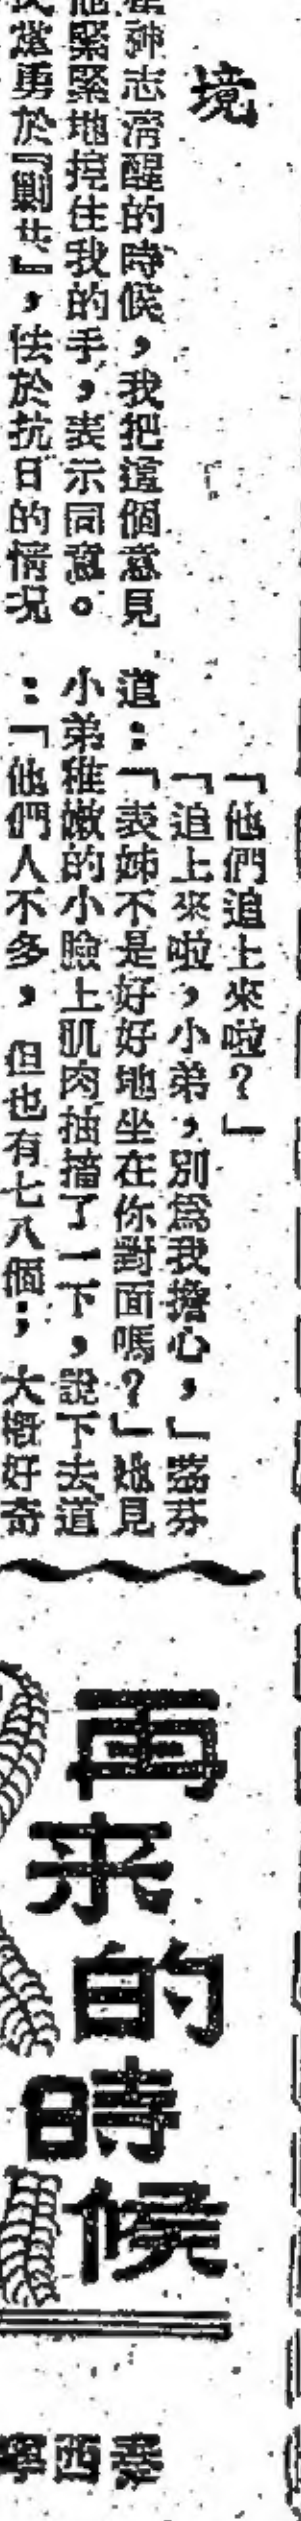 境
神志清醒的時候，我把這個意見
他緊緊地捏住我的手，表示同意。
勇於『剿共』，怯於抗日的情况
「他們追上來啦？」
「追上來啦，小弟，別爲我擔心，」露芬
道：「表姊不是好好地坐在你對面嗎？」她見
小弟稚嫩的小臉上肌肉抽搐了一下，說下去道
：「他們人不多，但也有七八個；大概好奇
再来的時候
秦西寧